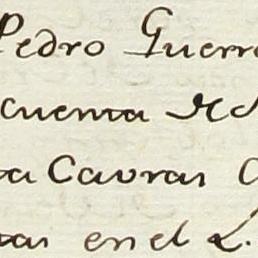 Pedro Guerr
cuenta de
Cavras
en el L.